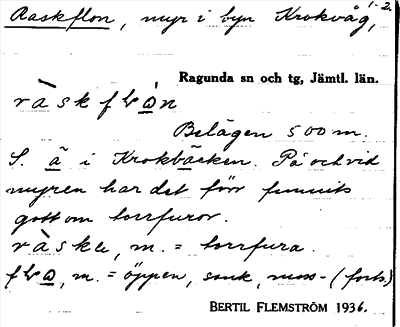 Raskflon, myr i byn Krokvåg, 1-2.
Ragunda sn och tg, Jämtl. län.
ràskflòn
Belägen 500 m.
S. ä i Krokbäcken. På och vid
myren har det förr funnits
gott om torrfuror.
ràska, m. = torrfura.
flo, m. = öppen, sank, moss- (forts.)
BERTIL FLEMSTRÖM 1936.